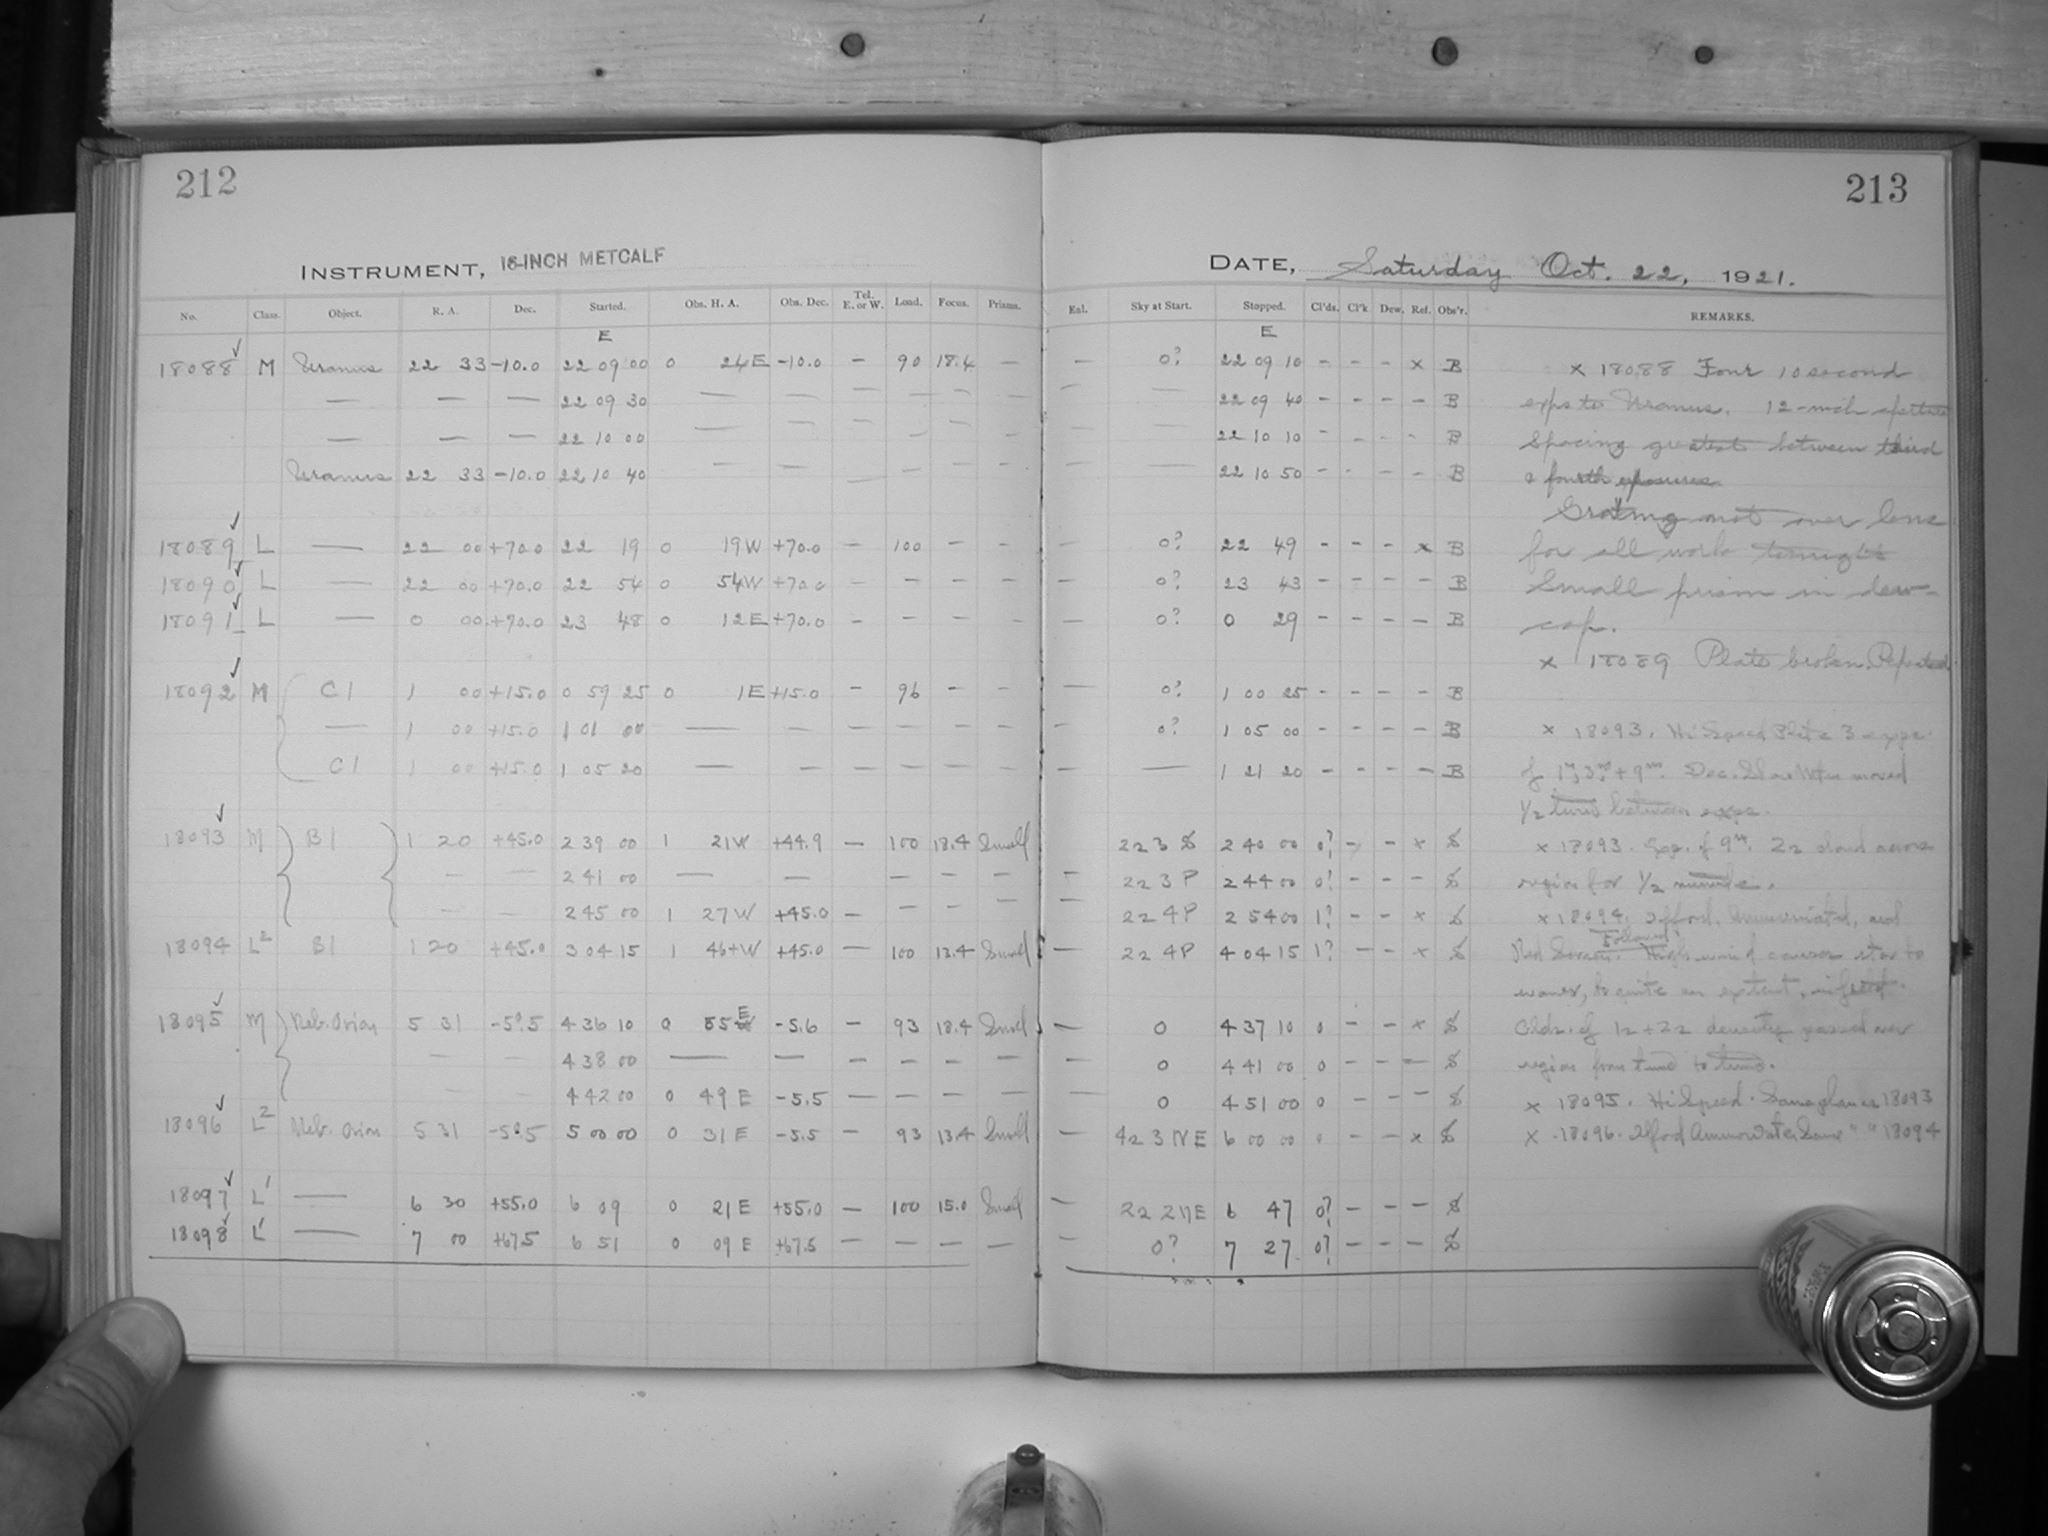 212
213
INSTRUMENT, 16-INCH METCALF
DATE, Saturday Oct. 22, 1921.
No. Class. Object. R. A. Dec. Started. Obs. H. A. Obs. Dec. Tel. E. or W. Load. Focus. Prisms. Enl. Sky at Start. Stopped. Cl'ds. Cl'k Dew. Ref. Obs'r. REMARKS.
E E
18088 M Uranus 22 33 -10.0 22 09 00 0 24 E -10.0 — 90 18.4 — — 0? 22 09 10 - - - x B x 18088 Four 10 second
— — — 22 09 30 — — — — — — — — 22 09 40 - - - - B exps to Uranus. 12-inch aperture
— — — 22 10 00 — — — — — — — — 22 10 10 - - - - B Spacing greatest between third
Uranus 22 33 -10.0 22 10 40 — — — — — — — — 22 10 50 - - - - B & fourth exposures.
Grating not over lens
18089 L — 22 00 +70.0 22 19 0 19 W +70.0 — 100 — — — 0? 22 49 - - - x B for all work tonight
18090 L — 22 00 +70.0 22 54 0 54 W +70.0 — — — — — 0? 23 43 - - - - B Small prism in dew-
18091 L — 0 00 +70.0 23 48 0 12 E +70.0 — — — — — 0? 0 29 - - - - B cap.
x 18089 Plate broken. Repeated
18092 M C1 1 00 +15.0 0 59 25 0 1 E +15.0 — 96 — — — 0? 1 00 25 - - - - B
— 1 00 +15.0 1 01 00 — — — — — — — 0? 1 05 00 - - - - B x 18093. Hi Speed Plate 3 exps.
C1 1 00 +15.0 1 05 20 — — — — — — — 1 21 20 - - - - B of 1m 3m + 9m. Dec. Slow Motion moved
1/2 turn between exps.
18093 M B1 1 20 +45.0 2 39 00 1 21 W +44.9 — 100 18.4 Small 22 3 S 2 40 00 0? - - x S x 18093. Exp. of 9m. 22 cloud across
— — 2 41 00 — — — — — — — 22 3 P 2 44 00 0? - - - S region for 1/2 minute.
— — 2 45 00 1 27 W +45.0 — — — — — 22 4 P 2 54 00 1? - - x S x 18094. Ilford, Ammoniated, and
18094 L2 B1 1 20 +45.0 3 04 15 1 46+ W +45.0 — 100 13.4 Small — 22 4 P 4 04 15 1? - - x S Red Screen. Followed. High wind causes star to
waver, to quite an extent, in field.
18095 M Neb. Orion 5 31 -5.5 4 36 10 0 55 E -5.6 — 93 18.4 Small — 0 4 37 10 0 - - x S Clds. of 12 + 22 density passed over
— — 4 38 00 — — — — — — — 0 4 41 00 0 - - - S region from time to time.
— — 4 42 00 0 49 E -5.5 — — — — — 0 4 51 00 0 - - - S x 18095. Hi Speed. Same plan as 18093
18096 L2 Neb. Orion 5 31 -5.5 5 00 00 0 31 E -5.5 — 93 13.4 Small — 42 3 NE 6 00 00 0 - - x S x 18096. Ilford Ammon Water Same " " 18094
18097 L1 — 6 30 +55.0 6 09 0 21 E +55.0 — 100 15.0 Small — 22 2 NE 6 47 0? - - - S
18098 L1 — 7 00 +67.5 6 51 0 09 E +67.5 — — — — — 0? 7 27 0? - - - S